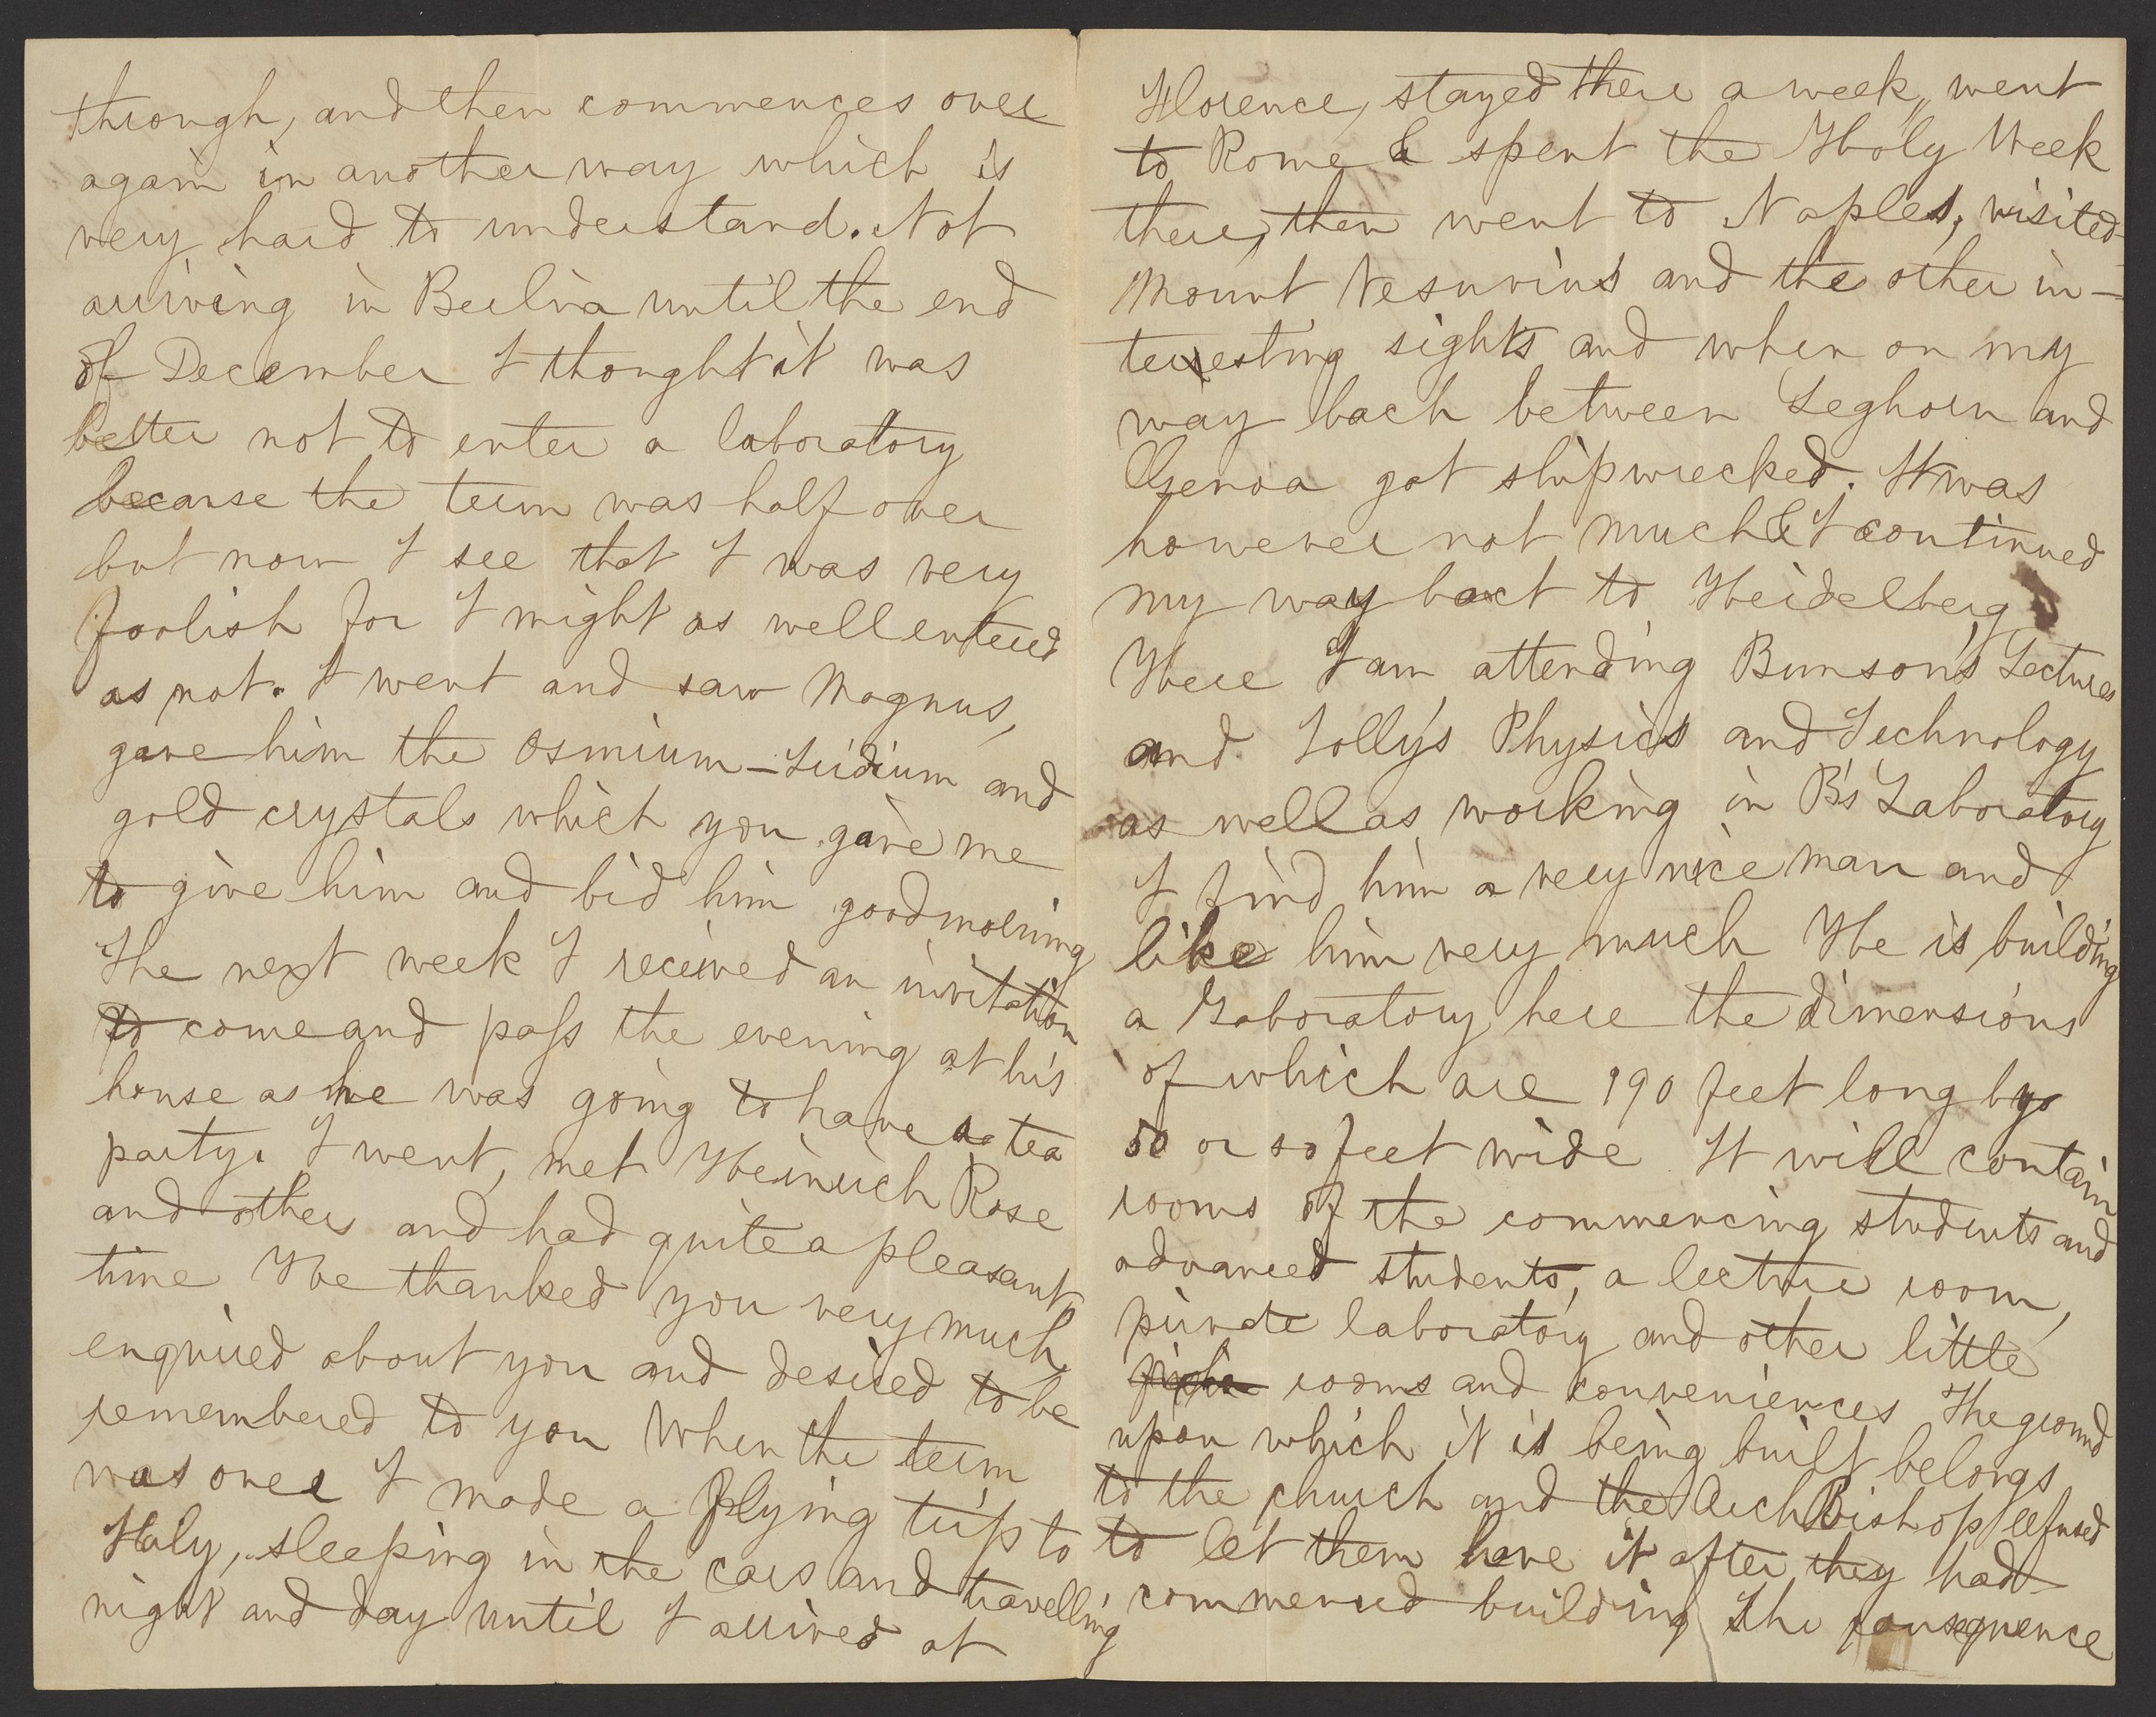 through, and then commences over
again in another way which is
very hard to understand. Not
arriving in Berlin until the end
of December I thought it was
better not to enter a laboratory
because the term was half over
but now I see that I was very
foolish for I might as well entered
as not. I went and saw Magnus,
gave him the Osmium-Iridium and
gold crystals which you gave me
to give him and bid him good morning
The next week I received an invitation
to come and pass the evening at his
house as he was going to have a tea
party. I went, met Heinrich Rose
and others and had quite a pleasant
time He thanked you very much,
enquired about you and desired to be
remembered to you When the term
was over I made a flying trip to
Italy, sleeping in the cars and travelling
night and day until I arrived at
Florence, stayed there a week, went
to Rome & spent the Holy Week
there, then went to Naples, visited
Mount Vesuvius and the other in-
teresting sights and when on my
way bach between Leghorn and
Genoa got shipwrecked. It was
however not much & I continued
my way back to Heidelberg
Here I am attending Bunson's Lectures
and Jolly's Physics and Technology
as well as working in B's Laboratory
I find him a very nice man and
like him very much He is building
a Laboratory here the dimensions
of which are 190 feet long by
50 or so feet wide It will contain
rooms of the commencing students and
advanced students, a lecture room,
private laboratory and other little
rooms and conveniences The ground
upon which it is being built belongs
to the church and the Arch Bishop refused
to let them have it after they had
commenced building The consequence